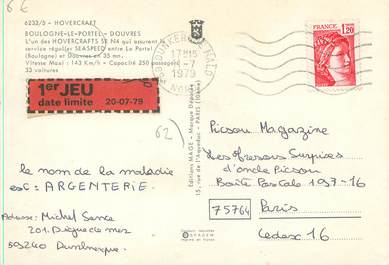 6 €
6232/5 - HOVERCRAFT
BOULOGNE-LE-PORTEL - DOUVRES
L'un des HOVERCRAFTS SR N4 qui assurent le
service régulier SEASPEED entre Le Portel
(Boulogne) et Douvres en 35 mn.
Vitesse Maxi : 143 Km/h - Capacité 250 passagers
33 voitures
1er JEU
date limite 20-07-79
DUNKERQUE MALO
17H15
-7
1979
NORD
FRANCE
1,20
62)
Editions MAGE - Marque Déposée
15, rue de l'Aqueduc - PARIS (10ème)
le nom de la maladie
est : ARGENTERIE.
Adresse: Michel
201. Digue de mer
59240 Dunkerque
Picsou Magazine
Les Trésors Surprises
d'oncle Picsou
Boîte Postale 197-16
75764 Paris
Cedex 16
Couleurs naturelles
SPADEM
Imprimé en France